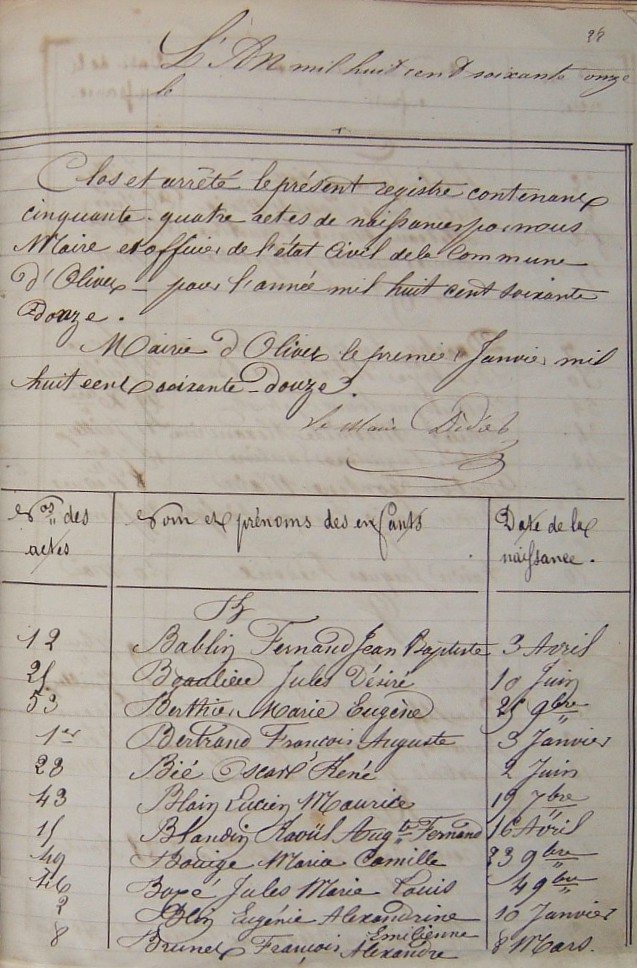 L'An mil huit cent soixante onze
le
Clos et arrêté le présent registre contenant
cinquante-quatre actes de naissances par nous
Maire et officier de l'état Civil de la Commune
d'Olivet - pour l'année mil huit cent soixante
douze.
Mairie d'Olivet le premier Janvier mil
huit cent soixante-Douze.
Le Maire
Nos des actes
Nom et prénoms des enfants
Date de la naissance.
B
12 Bablin Fernand Jean Baptiste 3 Avril
Jules Désiré 10 Juin
53 Berthier Marie Eugène 25 9bre
1er Bertrand François Auguste 3 Janvier
28 Bié Oscar René 2 Juin
43 Blain Lucien Maurice 19 7bre
15 Blandin Raoül Augte Fernand 16 Avril
49 Maria Camille 9bre
46 Jules Marie Louis 4 9bre
2 Eugénie Alexandrine 10 Janvier
Emilienne
8 Brunet François Alexandre 8 Mars.